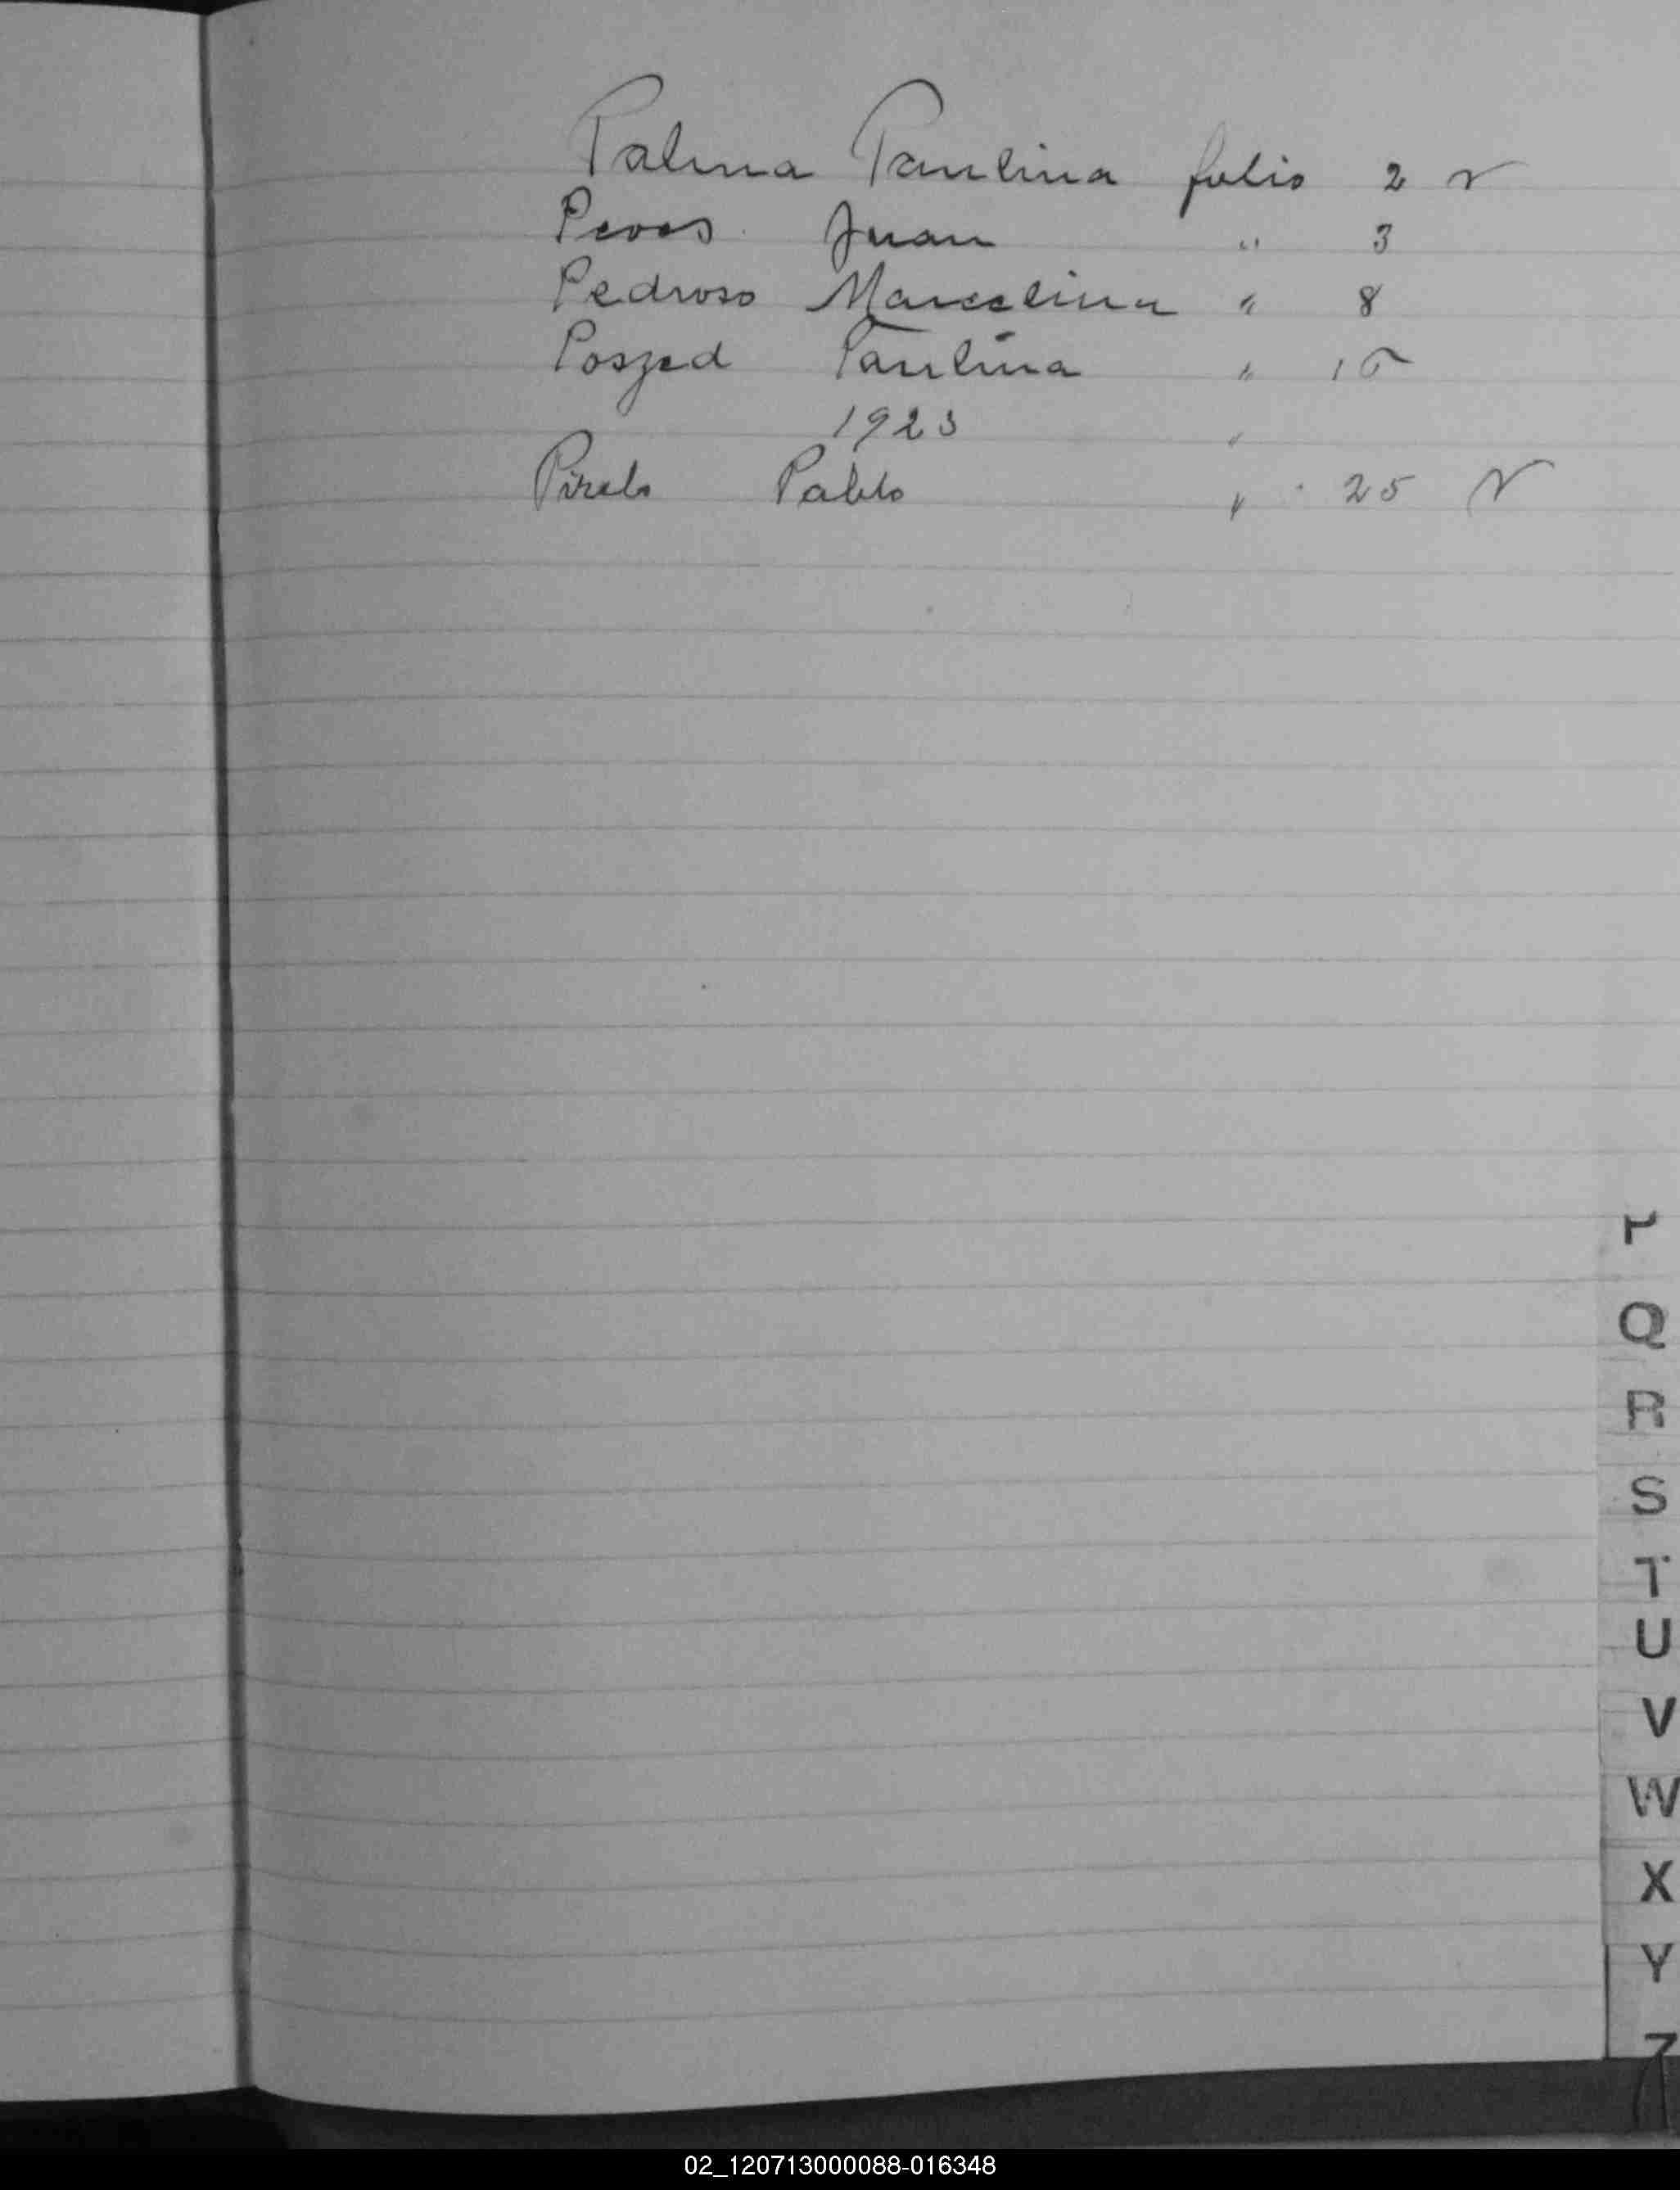 Palma Paulina folio 2 v
Peves Juan " 3
Pedroso Marcelina " 8
Poszed Paulina " 15
1923 "
Pirelo Pablo " 25 v
P
Q
R
S
T
U
V
W
X
Y
Z
02_120713000088-016348